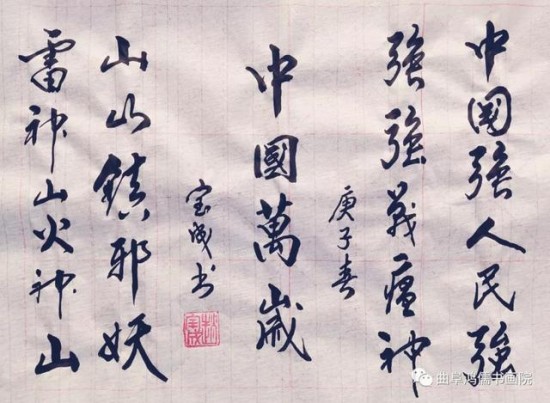 中國強人民強
強強戰瘟神
庚子春
中國萬歲
宝成书
山山鎮邪妖
雷神山火神山
曲阜鸿儒书画院